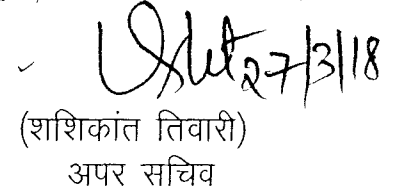 27/3/18
(शशिकांत तिवारी)
अपर सचिव